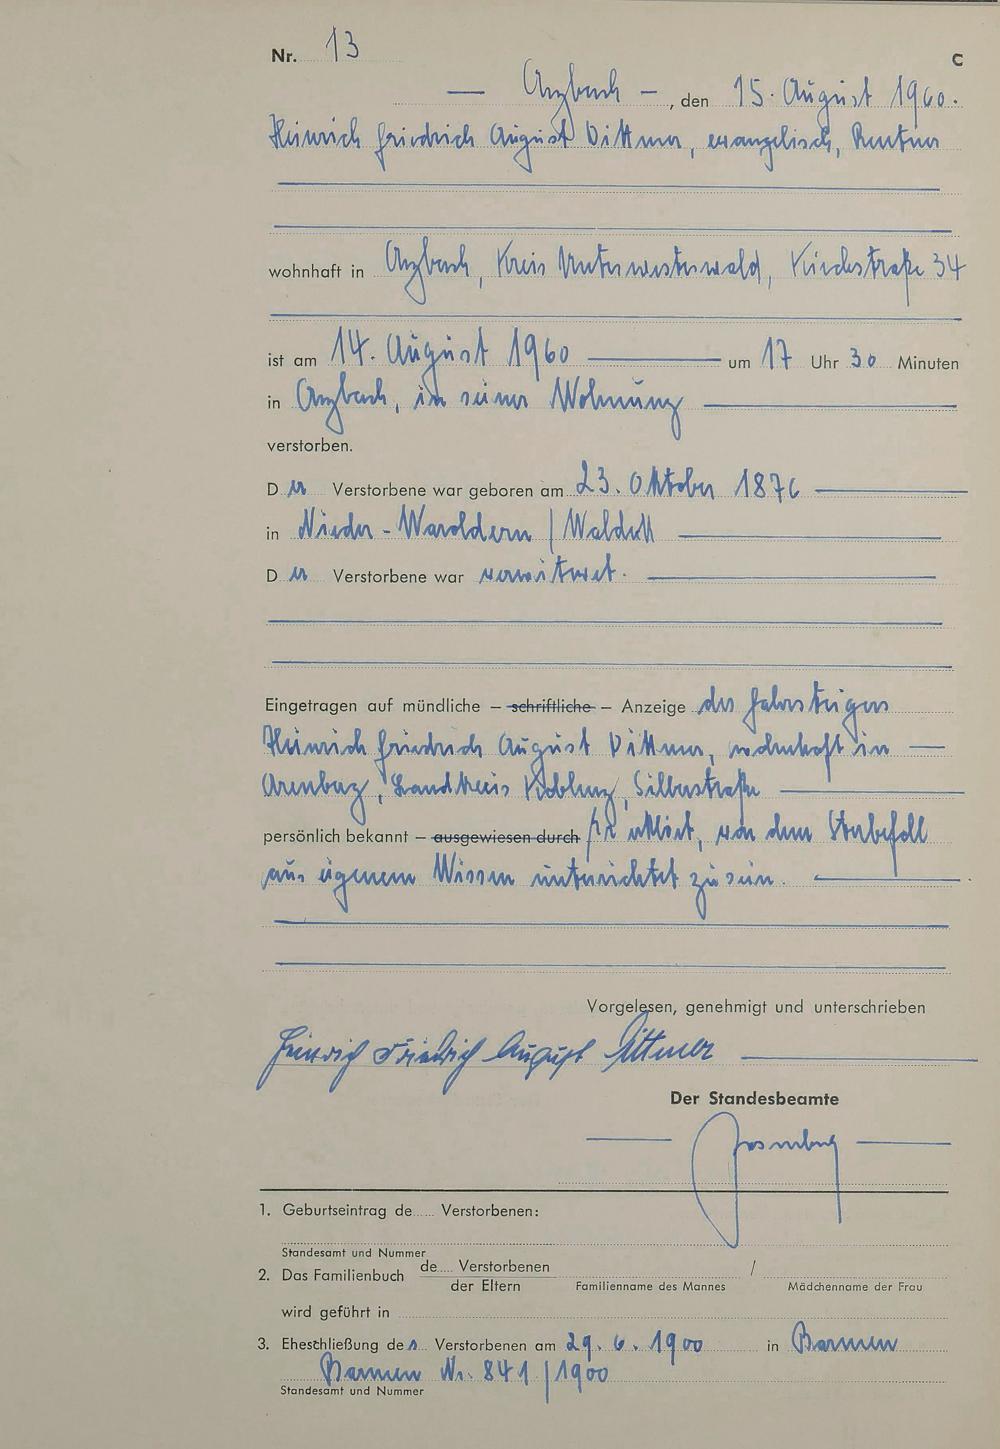 Nr. 13
C
— Arzbach —, den 15. August 1960.
Heinrich Friedrich August Dittmer, evangelisch, Rentner
wohnhaft in Arzbach, Kreis Unterwesterwald, Kirchstraße 34
ist am 14. August 1960 um 17 Uhr 30 Minuten
in Arzbach, in seiner Wohnung
verstorben.
Der Verstorbene war geboren am 23. Oktober 1876
in Nieder-Waroldern / Waldeck
Der Verstorbene war verwitwet.
Eingetragen auf mündliche – schriftliche – Anzeige des Fahrsteigers
Heinrich Friedrich August Dittmer, wohnhaft in —
Arenberg, Landkreis Koblenz, Silberstraße
persönlich bekannt – ausgewiesen durch Er erklärt, von dem Sterbefall
aus eigenem Wissen unterrichtet zu sein.
Vorgelesen, genehmigt und unterschrieben
Heinrich Friedrich August Dittmer
Der Standesbeamte
1. Geburtseintrag de..... Verstorbenen:
Standesamt und Nummer
2. Das Familienbuch de.... Verstorbenen /
der Eltern Familienname des Mannes Mädchenname der Frau
wird geführt in
3. Eheschließung des Verstorbenen am 29. 6. 1900 in Barmen
Barmen Nr. 841/1900
Standesamt und Nummer